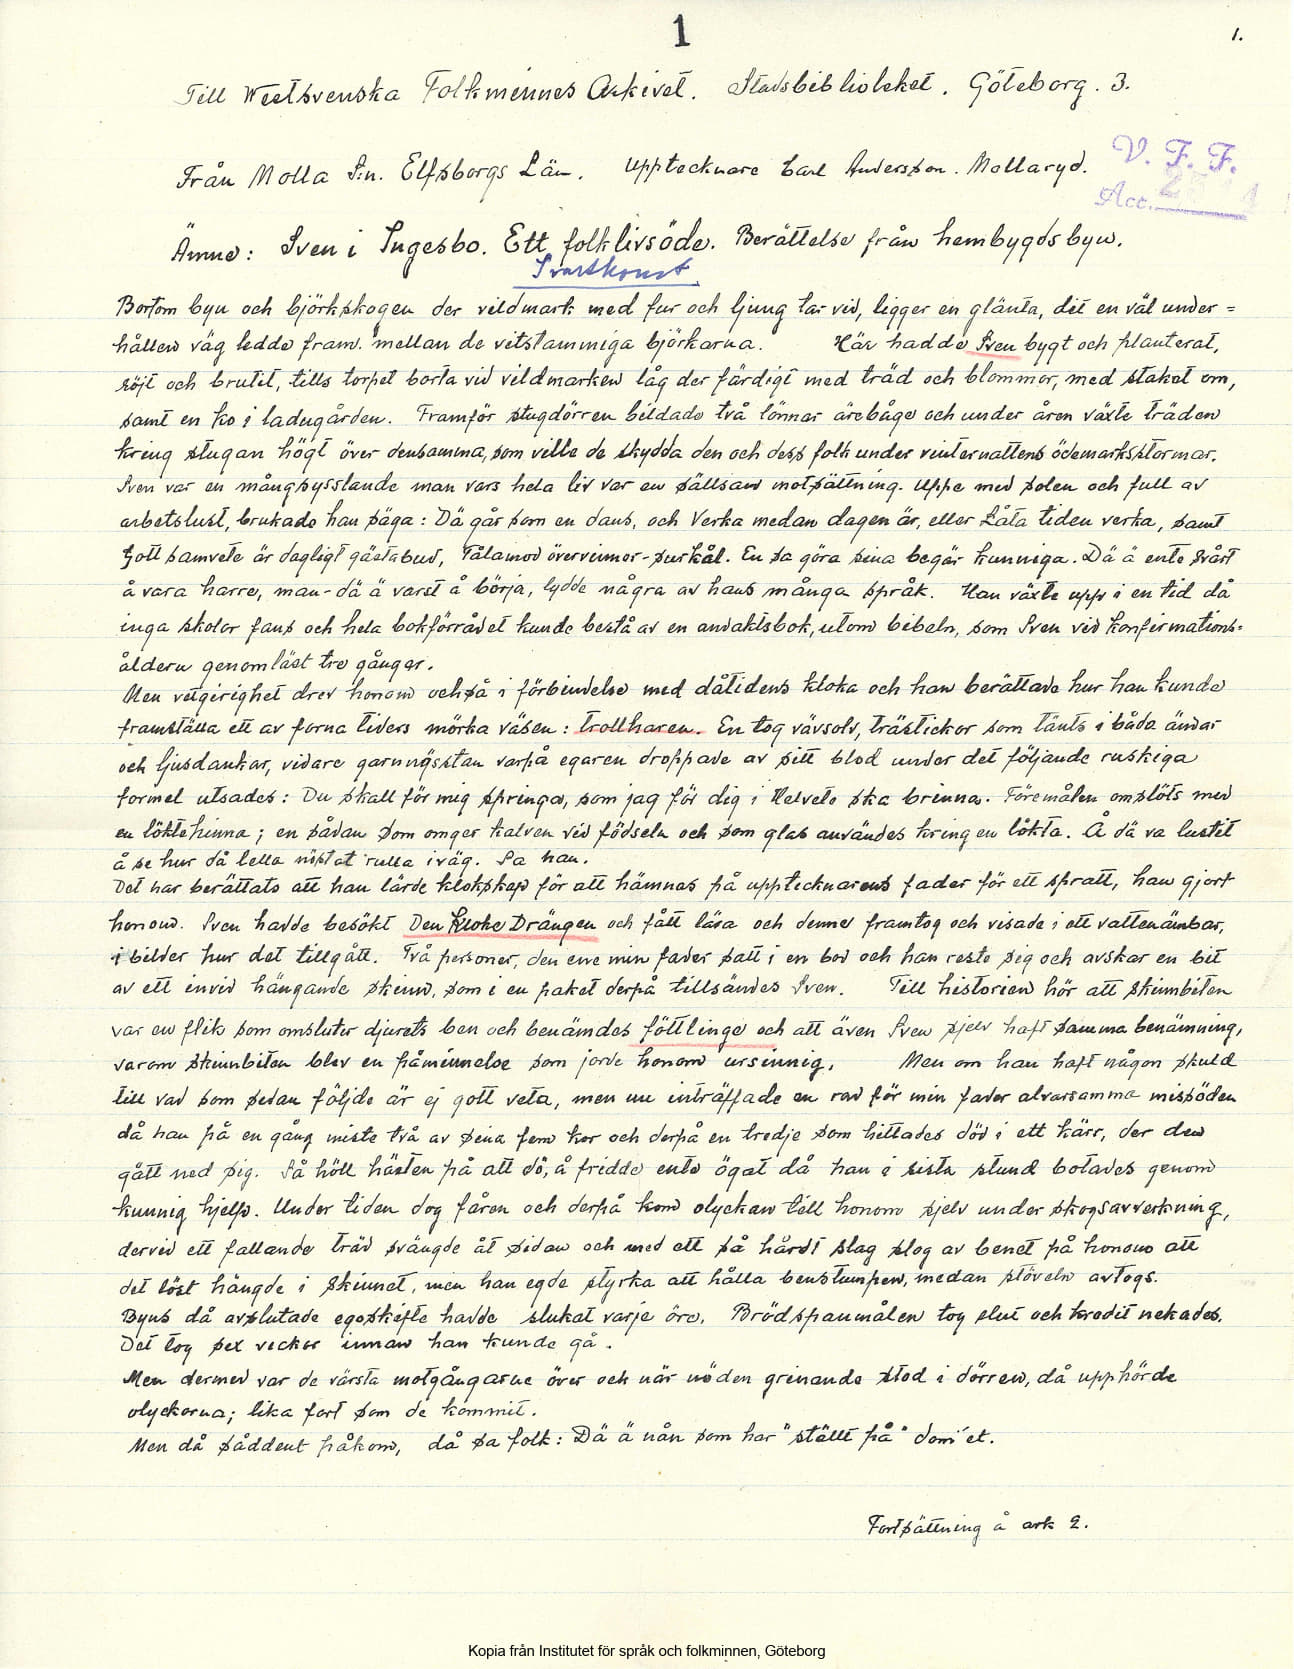 1
1.
Till Westsvenska Folkminnes Arkivet. Stadsbiblioteket. Göteborg. 3.
Från Molla S:n. Elfsborgs Län. Upptecknare Carl Andersson. Mollaryd.
V. F. F.
Acc.
Ämne: Sven i Ingesbo. Ett folklivsöde. Berättelse från hembygdsbyn.
Svartkonst
Bortom byn och björkskogen der vildmark med fur och ljung tar vid, ligger en glänta, dit en väl under=
hållen väg ledde fram mellan de vitstammiga björkarna. Här hadde Sven bygt och planterat,
röjt och brutit, tills torpet borta vid vildmarken låg der färdigt med träd och blommor, med staket om,
samt en ko i ladugården. Framför stugdörren bildade två lönnar ärebåge och under åren växte träden
kring stugan högt över densamma, som ville de skydda den och dess folk under vinternattens ödemarksstormar.
Sven var en mångsysslande man vars hela liv var en sällsam motsättning. Uppe med solen och full av
arbetslust, brukade han säga: Dä går som en dans, och Verka medan dagen är, eller Låta tiden verka, samt
Gott samvete är dagligt gästabud, Tålamod övervinner-surkål. En sa göra sina begär kunniga. Dä ä ente svårt
å vara harre, man-dä ä varst å börja, lydde några av hans många språk. Han växte upp i en tid då
inga skolor fans och hela bokförrådet kunde bestå av en andaktsbok, utom bibeln, som Sven vid konfirmations=
åldern genomläst tre gånger.
Men vetgirighet drev honom också i förbindelse med dåtidens kloka och han berättade hur han kunde
framställa ett av forna tiders mörka väsen: trollharen. En tog vävsolv, trästickor som tänts i båda ändar
och ljusdankar, vidare garnnystan varpå egaren droppade av sitt blod under det följande ruskiga
formel utsades: Du skall för mig springa, som jag för dig i Helvete ska brinna. Föremålen omslöts med
en löktehinna; en sådan som omger kalven vid födseln och som glas användes kring en lökta. Å dä va lustit
å se hur då lella nöstat rulla iväg. Sa han.
Det har berättats att han lärde klokskap för att hämnas på upptecknarens fader för ett spratt, han gjort
honom. Sven hadde besökt Den Kloke Drängen och fått läsa och denne framtog och visade i ett vattenämbar,
i bilder hur det tillgått. Två personer, den ene min fader satt i en bod och han reste sig och avskar en bit
av ett invid hängande skinn, som i en paket derpå tillsändes Sven. Till historien hör att skinnbiten
var en flik som omsluter djurets ben och benämdes föttlinge och att även Sven sjelv haft samma benämning,
varom skinnbiten blev en påminnelse som jorde honom ursinnig. Men om han haft någon skuld
till vad som sedan följde är ej gott veta, men nu inträffade en rad för min fader alvarsamma missöden
då han på en gång miste två av sina fem kor och derpå en tredje som hittades död i ett kärr, der den
gått ned sig. Så höll hästen på att dö, å fridde ente ögat då han i sista stund botades genom
kunnig hjelp. Under tiden dog fåren och derpå kom olyckan till honom sjelv under skogsavverkning,
dervid ett fallande träd svängde åt sidan och med ett så hårdt slag slog av benet på honom att
det löst hängde i skinnet, men han egde styrka att hålla benstumpen, medan stöveln avtogs.
Byns då avslutade egoskifte hadde slukat varje öre. Brödspanmålen tog slut och kredit nekades.
Det tog sex veckor innan han kunde gå.
Men dermed var de värsta motgångarne över och när nöden grinande stod i dörren, då upphörde
olyckorna; lika fort som de kommit.
Men då såddent påkom, då sa folk: Dä ä nån som har "ställt på" dom'et.
Fortsättning å ark 2.
Kopia från Institutet för språk och folkminnen, Göteborg